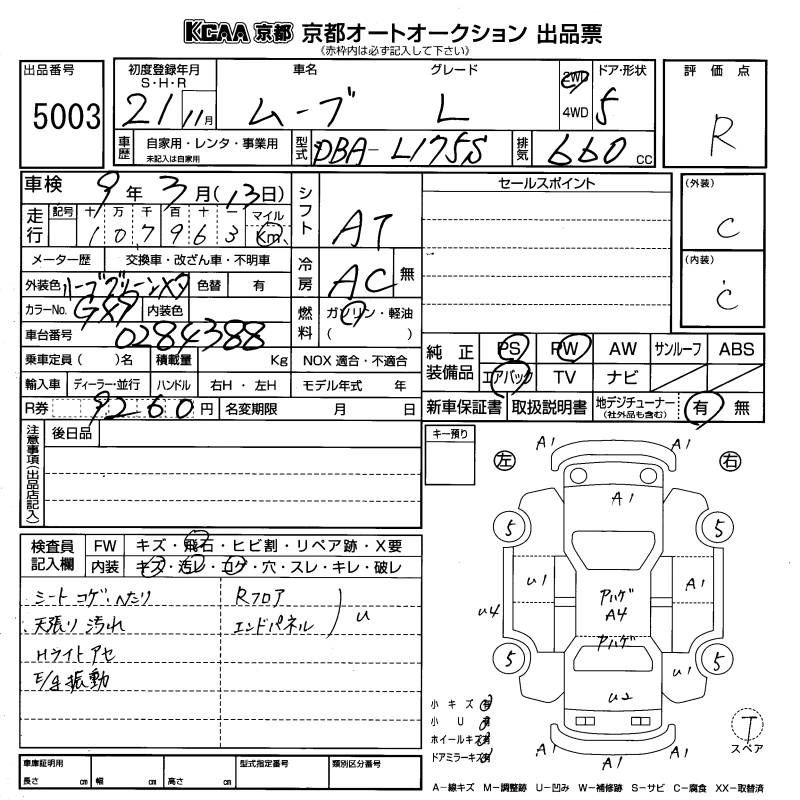 KCAA 京都 京都オートオークション 出品票
(赤枠内は必ず記入して下さい)
出品番号 5003
初度登録年月 S・H・R 21 11月
車名 ムーブ
グレード L
2WD 4WD
ドア・形状 5
評価点 R
車歴 自家用・レンタ・事業用 未記入は自家用
型式 DBA-L175S
排気 660 cc
車検 9年 3月(13日)
シフト AT
セールスポイント
(外装) C
走行 記号 十 万 千 百 十 一 マイル
107963 Km
メーター歴 交換車・改ざん車・不明車
冷房 AC 無
(内装) C
外装色 色替 有
カラーNo. 内装色
燃料 ガソリン・軽油 ( )
車台番号 0284388
乗車定員( )名 積載量 Kg NOX 適合・不適合
純正装備品 PS PW AW サンルーフ ABS
エアバック TV ナビ
輸入車 ディーラー・並行 ハンドル 右H・左H モデル年式 年
R券 9260円 名変期限 月 日
新車保証書 取扱説明書 地デジチューナー (社外品も含む) 有 無
注意事項(出品店記入)
後日品
キー預り
左 右
A1 A1
A1
5 5
U1 A1
アハゲ
A4
U4
アハゲ
5 5
U1
U2
A1 A1
A1 A1
検査員記入欄
FW キズ・飛石・ヒビ割・リペア跡・X要
内装 キズ・汚レ・コゲ・穴・スレ・キレ・破レ
シートコゲ・へたり Rフロア
天張り汚れ エンドパネル U
Hライトアセ
E/g振動
小キズ
小U
ホイールキズ
ドアミラーキズ
T
スペア
車庫証明用 型式指定番号 類別区分番号
長さ cm 幅 cm 高さ cm
A-線キズ M-調整跡 U-凹み W-補修跡 S-サビ C-腐食 XX-取替済